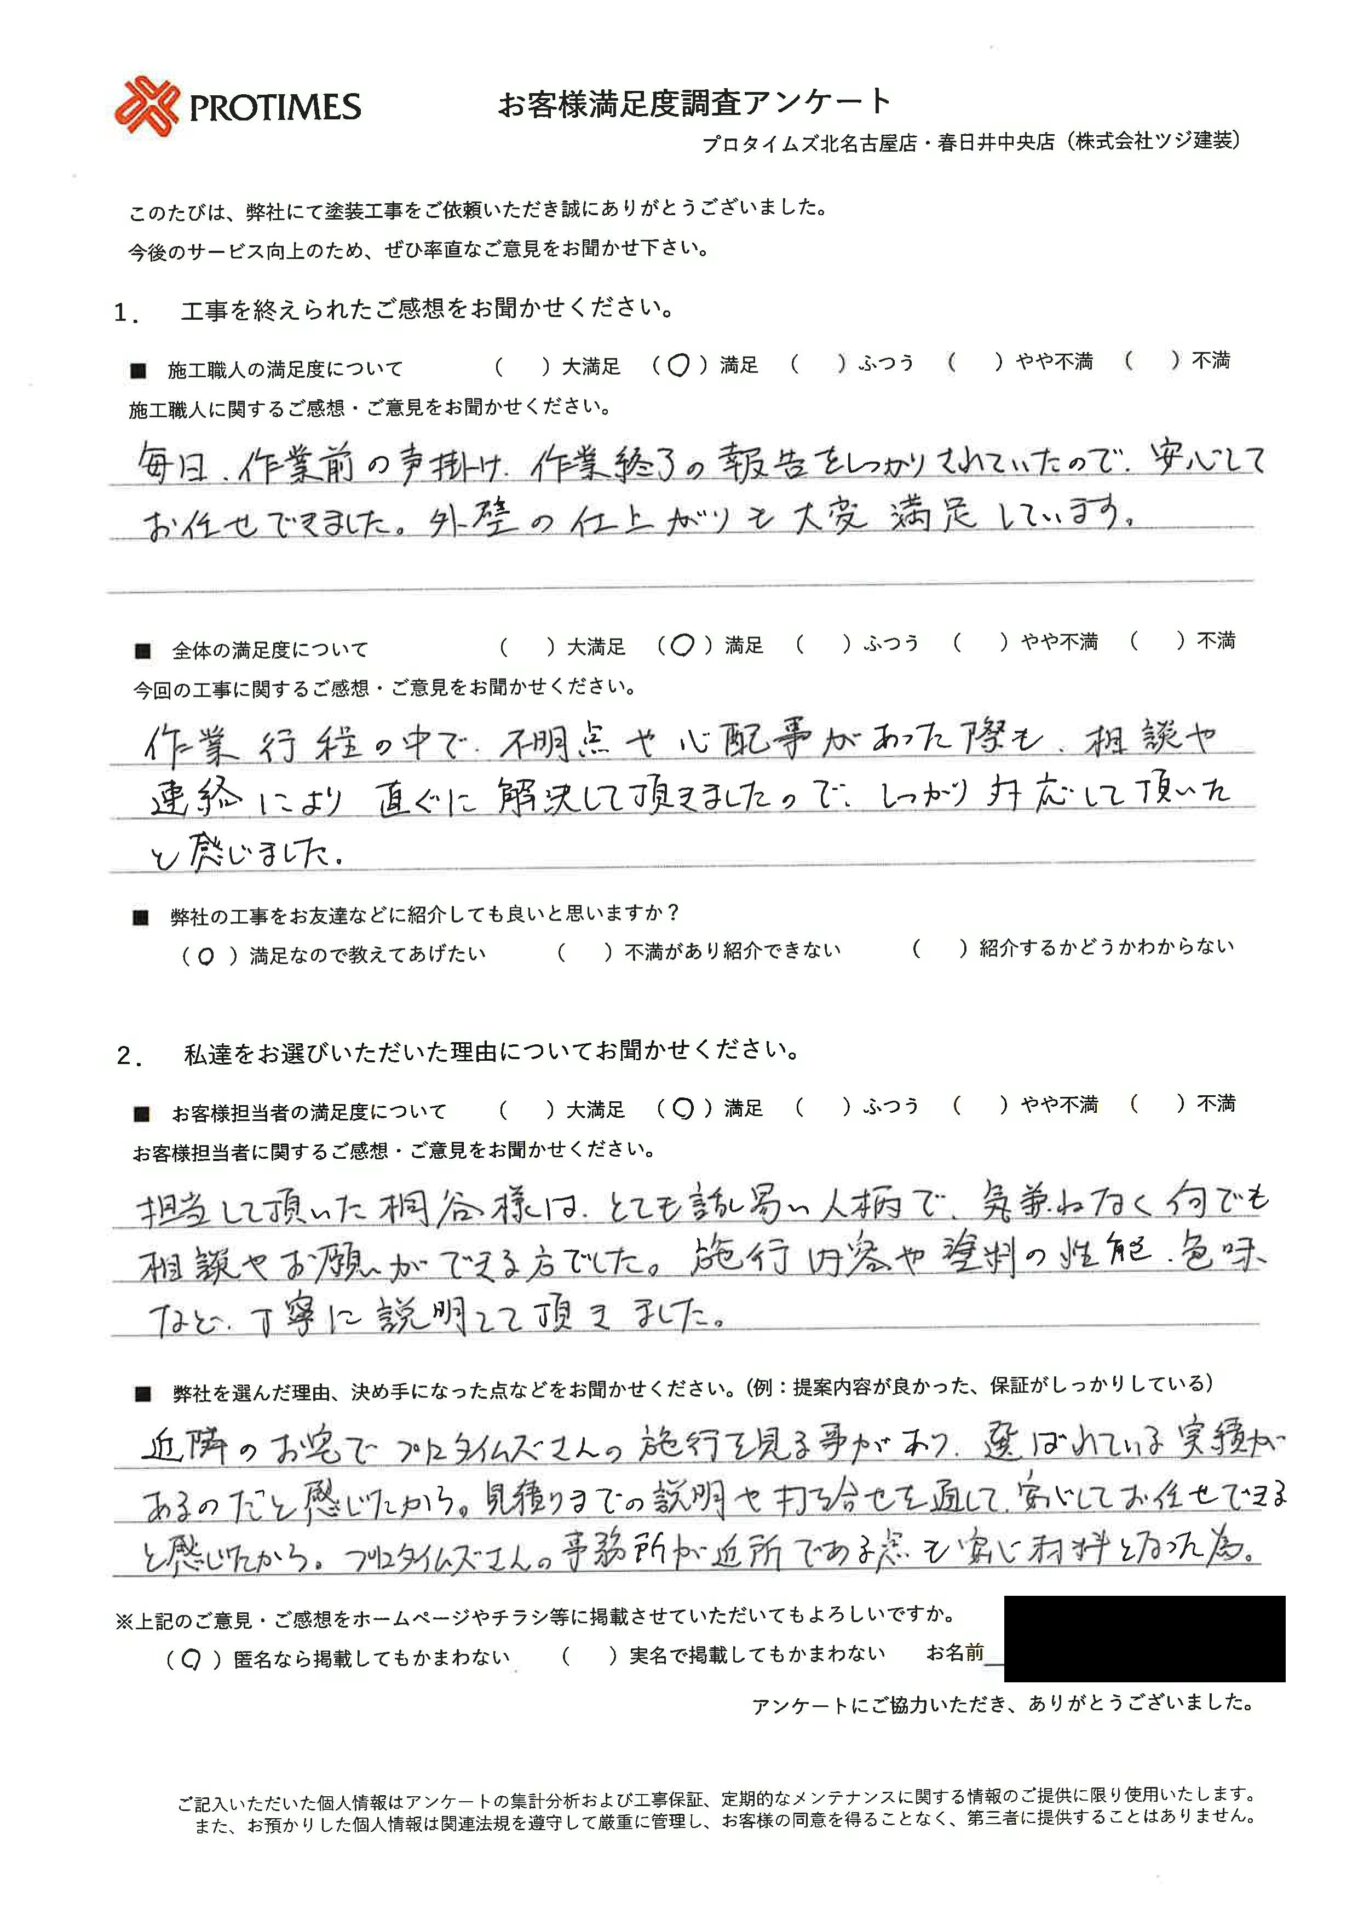 PROTIMES
お客様満足度調査アンケート
プロタイムズ北名古屋店・春日井中央店（株式会社ツジ建装）
このたびは、弊社にて塗装工事をご依頼いただき誠にありがとうございました。
今後のサービス向上のため、ぜひ率直なご意見をお聞かせ下さい。
1． 工事を終えられたご感想をお聞かせください。
■ 施工職人の満足度について （ ）大満足 （○）満足 （ ）ふつう （ ）やや不満 （ ）不満
施工職人に関するご感想・ご意見をお聞かせください。
毎日、作業前の声掛け、作業終了の報告をしっかりされていたので、安心して
お任せできました。外壁の仕上がりも大変満足しています。
■ 全体の満足度について （ ）大満足 （○）満足 （ ）ふつう （ ）やや不満 （ ）不満
今回の工事に関するご感想・ご意見をお聞かせください。
作業行程の中で、不明点や心配事があった際も、相談や
連絡により直ぐに解決して頂きましたので、しっかり対応して頂いた
と感じました。
■ 弊社の工事をお友達などに紹介しても良いと思いますか？
（○）満足なので教えてあげたい （ ）不満があり紹介できない （ ）紹介するかどうかわからない
2． 私達をお選びいただいた理由についてお聞かせください。
■ お客様担当者の満足度について （ ）大満足 （○）満足 （ ）ふつう （ ）やや不満 （ ）不満
お客様担当者に関するご感想・ご意見をお聞かせください。
担当して頂いた桐谷様は、とても話し易い人柄で、気兼ねなく何でも
相談やお願いができる方でした。施行内容や塗料の性能、色味
など、丁寧に説明して頂きました。
■ 弊社を選んだ理由、決め手になった点などをお聞かせください。（例：提案内容が良かった、保証がしっかりしている）
近隣のお宅でプロタイムズさんの施行を見る事があり、選ばれている実績が
あるのだと感じたから。見積りまでの説明や打ち合せを通して、安心してお任せできる
と感じたから。プロタイムズさんの事務所が近所である点も安心材料となった為。
※上記のご意見・ご感想をホームページやチラシ等に掲載させていただいてもよろしいですか。
（○）匿名なら掲載してもかまわない （ ）実名で掲載してもかまわない お名前
アンケートにご協力いただき、ありがとうございました。
ご記入いただいた個人情報はアンケートの集計分析および工事保証、定期的なメンテナンスに関する情報のご提供に限り使用いたします。
また、お預かりした個人情報は関連法規を遵守して厳重に管理し、お客様の同意を得ることなく、第三者に提供することはありません。